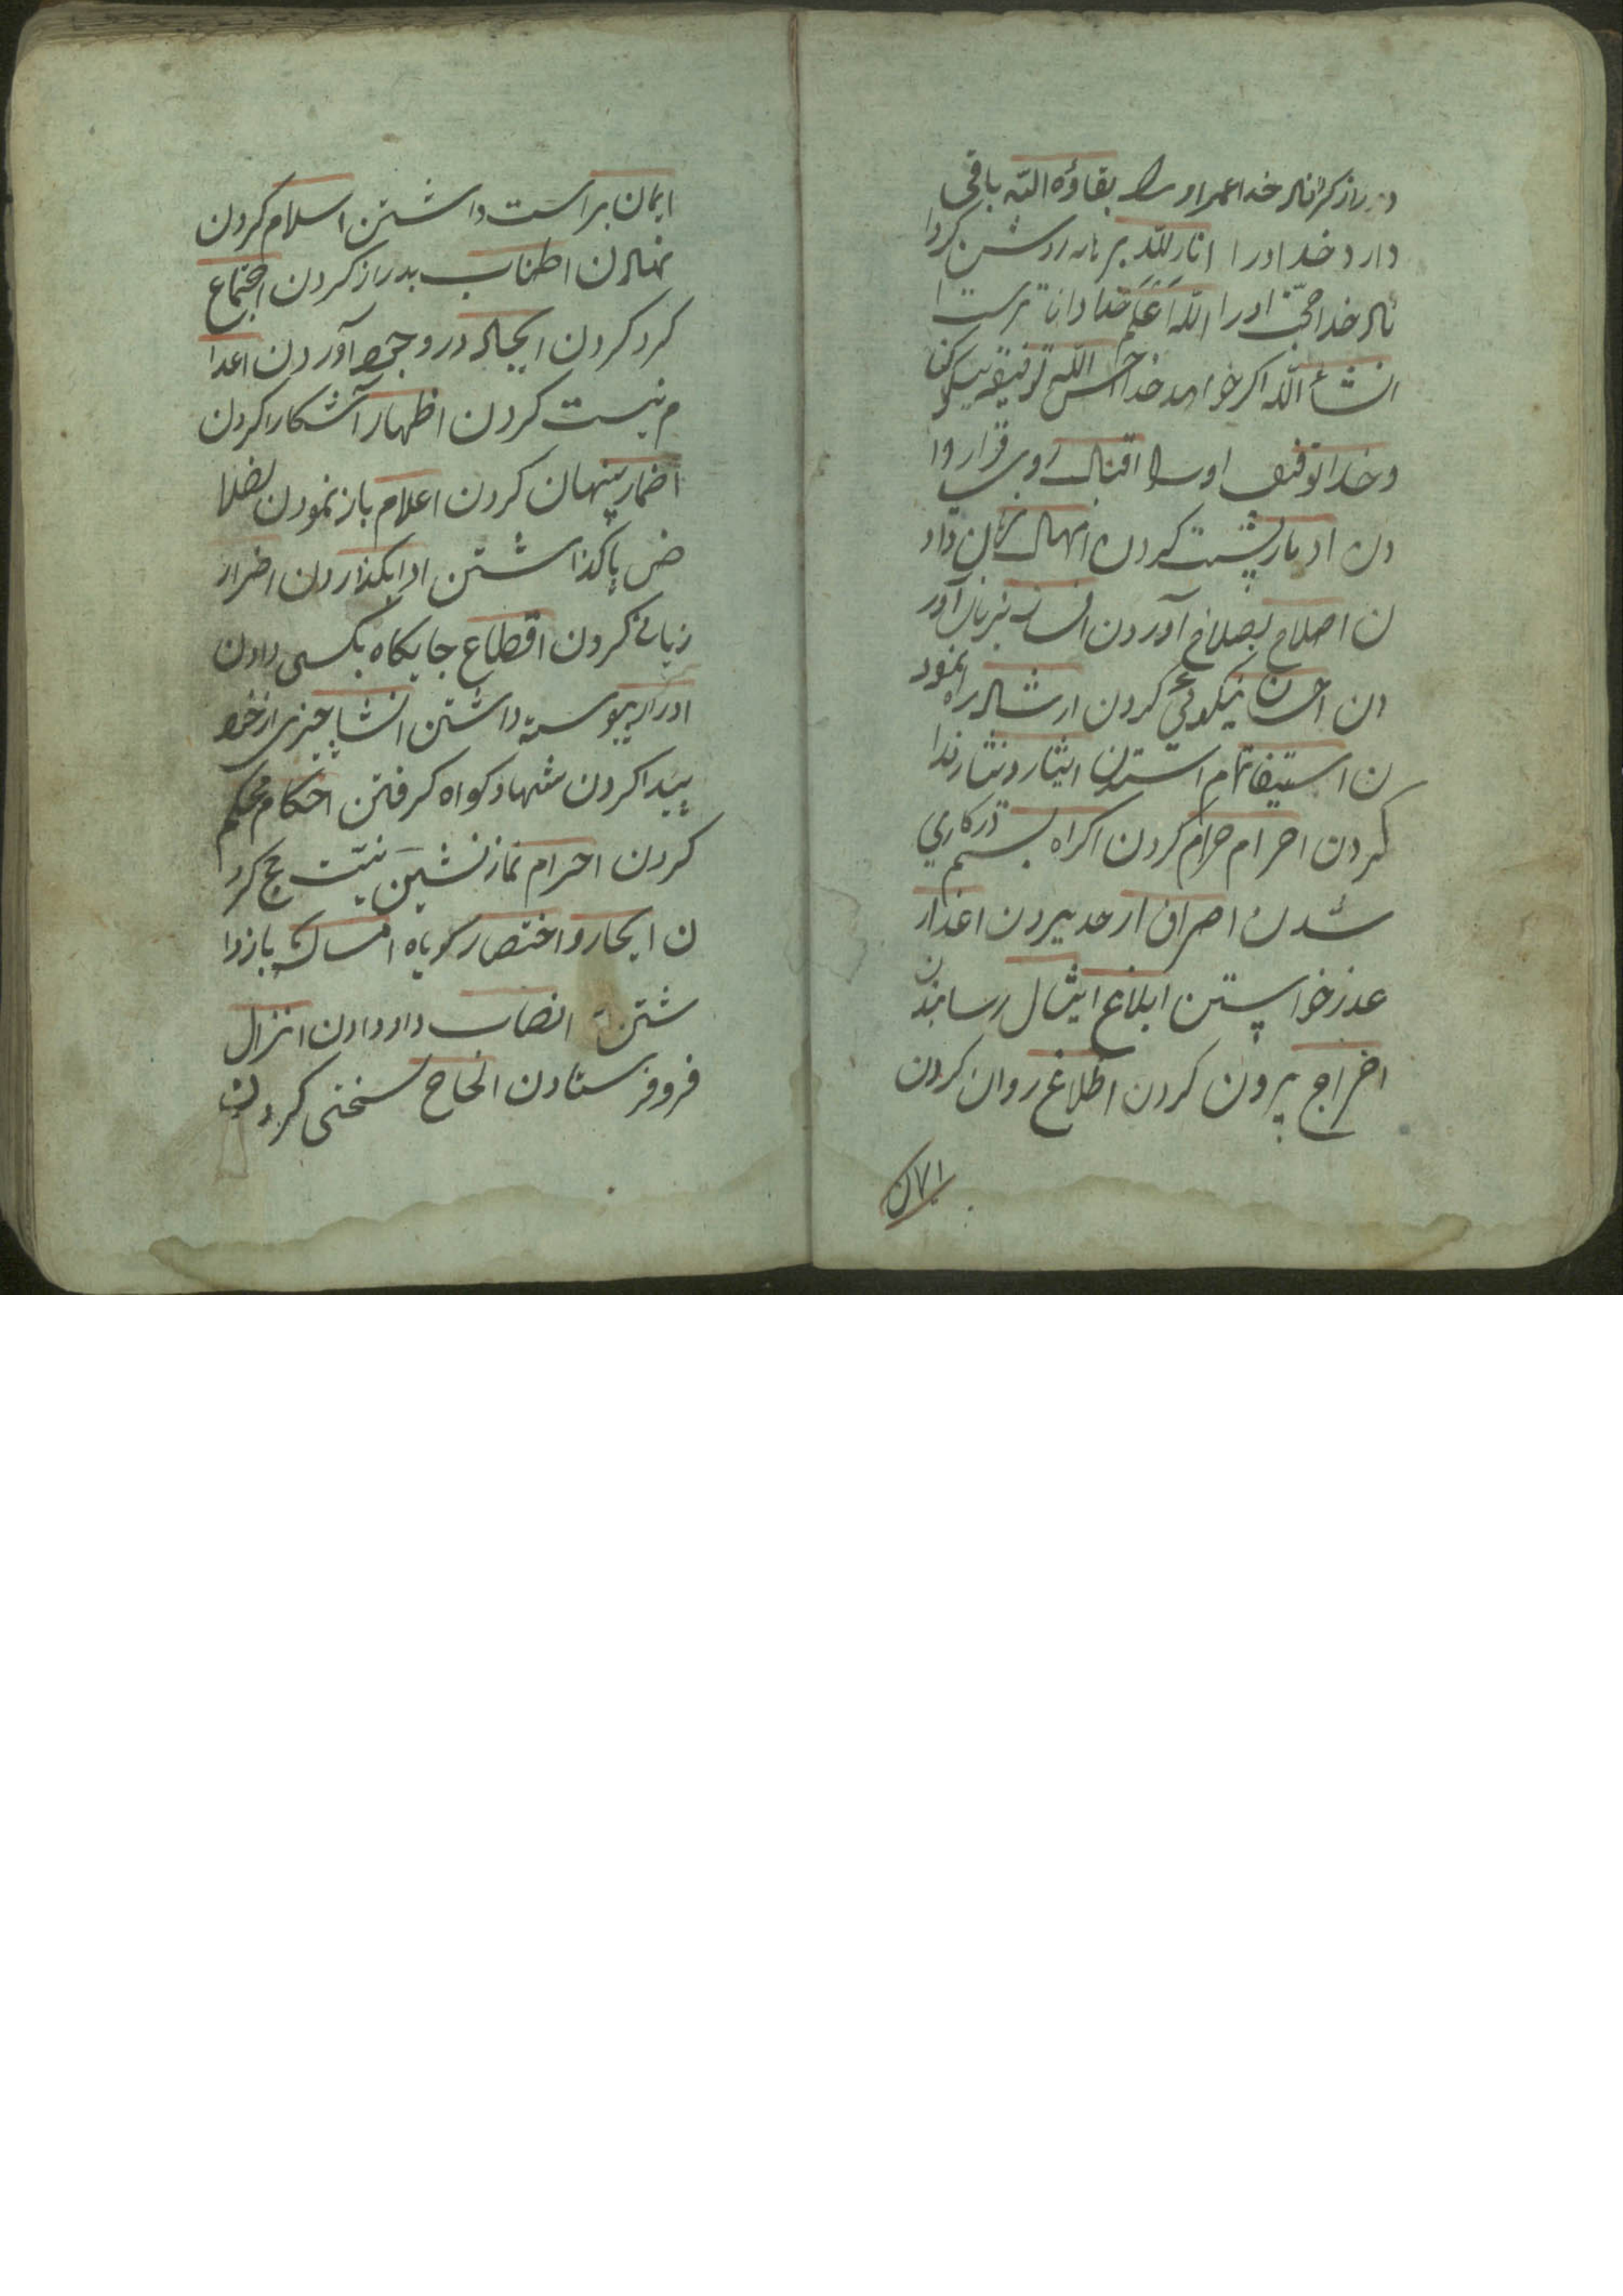 دراز کرداناد خدا عمر او را بقاؤه الله باقی
دارد خدا اورا انار الله برهانه روشن کردا
ناد خدا حجّت اورا الله اعلم خدا دانا ترست
انشأ الله اکر خواهد خدا احسن الله توفیقه نیکو کنا
د خدا توفیق او را اقبال روی فرا روا
دن ادبار پشت کردن امهال زمان داد
ن اصلاح بصلاح آوردن افساد بزیان آور
دن احسان نیکوئی کردن ارشاد راه نمود
ن استیفا تمام استدن ایثار و نثار فدا
کردن احرام حرام کردن اکراه بستم درکاری
شدن اصراف از حد بیردن اعذار
عذر خواستن ابلاغ ایثال رسانیدن
اخراج بیرون کردن اطلاع روان کردن
۷۱
ایمان براست داشتن اسلام کردن
نهادن اطناب بدراز کردن اجتماع
کرد کردن ایجاد در وجود آوردن اعدا
م نیست کردن اظهار آشکارا کردن
اضمار پنهان کردن اعلام باز نمودن
ض پاکذاشتن ادا بکذاردن اضرار
زیانی کردن اقطاع جایکاه بکسی دادن
ادرار پیوسته داشتن انشا چیزی از خود
پیدا کردن شهاد کواه کرفتن احکام محکم
کردن احرام نماز نشین نیّت حج کرد
ن ایجاز و اختصار کوتاه امساک بازدا
شتن انصاب داد دادن انزال
فرو فرستادن الحاح سختی کردن